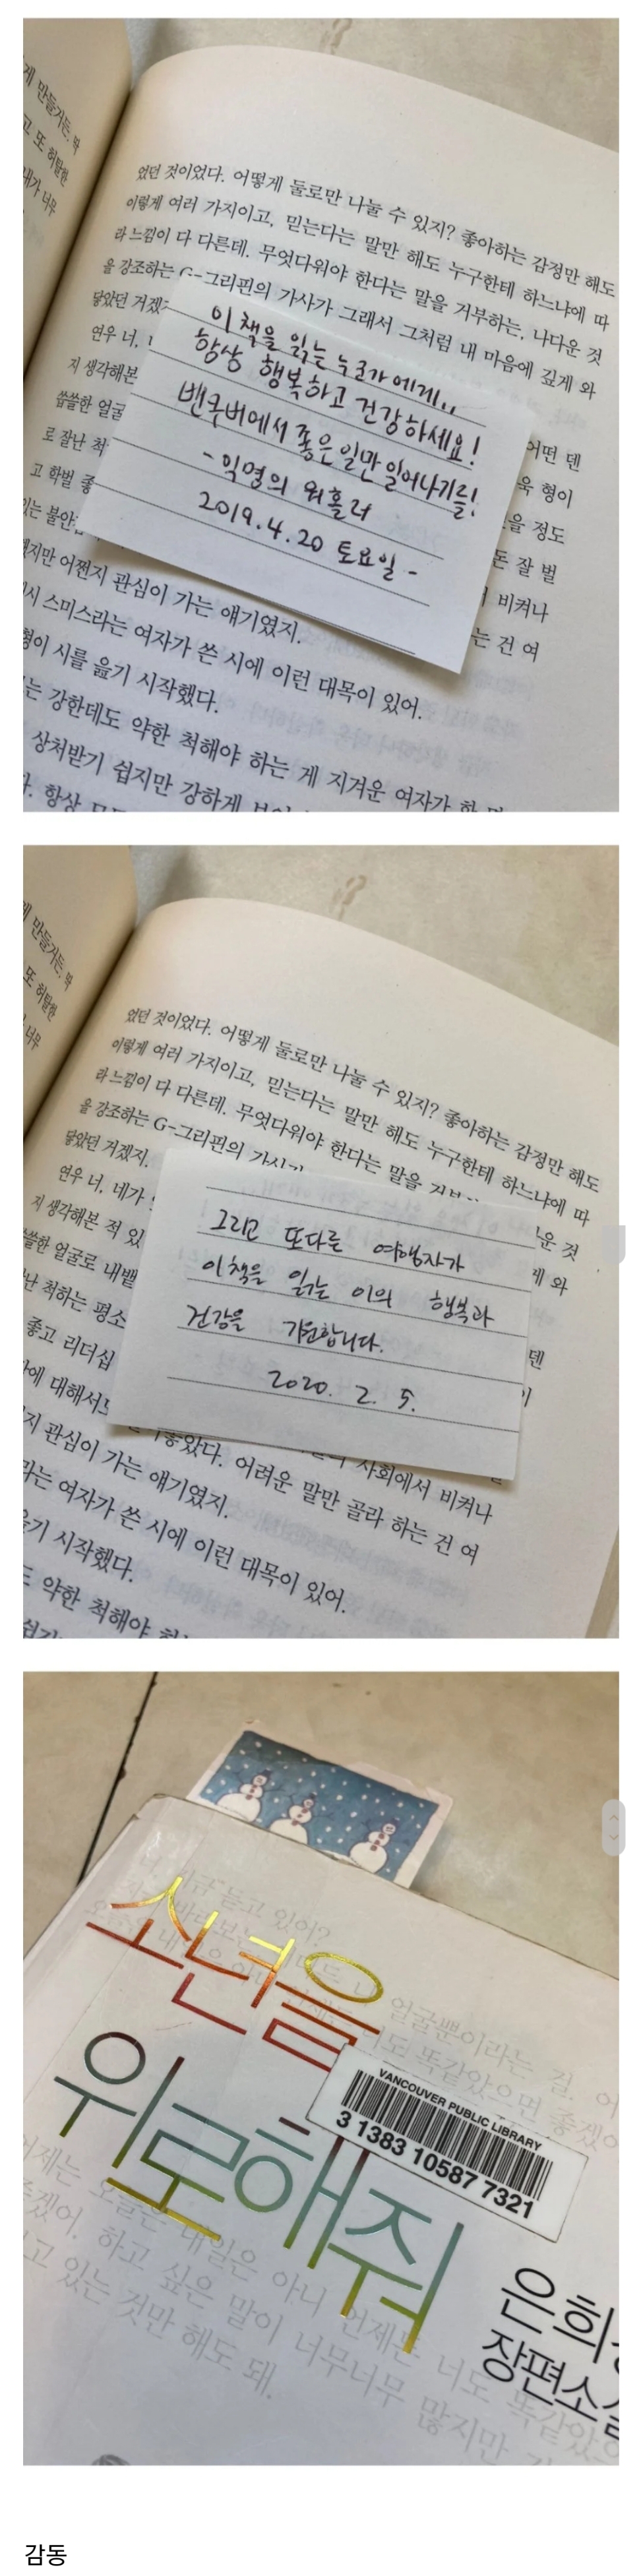 게 만들거든. 박
고 또 허탈한
내가 너무
었던 것이었다. 어떻게 둘로만 나눌 수 있지? 좋아하는 감정만 해도
이렇게 여러 가지이고, 믿는다는 말만 해도 누구한테 하느냐에 따
라 느낌이 다 다른데. 무엇다워야 한다는 말을 거부하는, 나다운 것
을 강조하는 G-그리핀의 가사가 그래서 그처럼 내 마음에 깊게 와
닿았던 거겠지
연우 너,
지 생각해본
씁쓸한 얼굴
로 잘난 척
고 학벌 좋
있는 불안
지만 어쩐지 관심이 가는 얘기였지.
시 스미스라는 여자가 쓴 시에 이런 대목이 있어.
형이 시를 읊기 시작했다.
는 강한데도 약한 척해야 하는 게 지겨운 여자가 한 명
상처받기 쉽지만 강하게
항상
어떤 덴
욱 형이
을 정도
돈 잘 벌
비켜나
는 건 여
이 책을 읽는 누군가에게..
항상 행복하고 건강하세요!
밴쿠버에서 좋은일만 일어나기를!
- 익명의 워홀러
2019.4.20 토요일 -
게 만들거든. 박
또 허탈한
너무
었던 것이었다. 어떻게 둘로만 나눌 수 있지? 좋아하는 감정만 해도
이렇게 여러 가지이고, 믿는다는 말만 해도 누구한테 하느냐에 따
라 느낌이 다 다른데. 무엇다워야 한다는 말을
운 것
을 강조하는 G-그리핀의
게 와
닿았던 거겠지.
연우 너, 네가
지 생각해본 적 있
쓸한 얼굴로 내뱉
난 척하는 평소
좋고 리더십
에 대해서
덴
사회에서 비켜나
지 관심이 가는 얘기였지.
어려운 말만 골라 하는 건 여
라는 여자가 쓴 시에 이런 대목이 있어.
읊기 시작했다.
약한 척해야
그리고 또다른 여행자가
이책을 읽는 이의 행복과
건강을 기원합니다.
2020. 2. 5.
소년을
위로해줘
VANCOUVER PUBLIC LIBRARY
3 1383 10587 7321
은희
장편소설
듣고 있어?
얼굴뿐이라는 걸.
너도 똑같았으면 좋겠어
어제는 오늘은 내일은 아니 언제든 너도 똑같았으
좋겠어. 하고 싶은 말이 너무너무 많지만
고 있는 것만 해도 돼.
감동